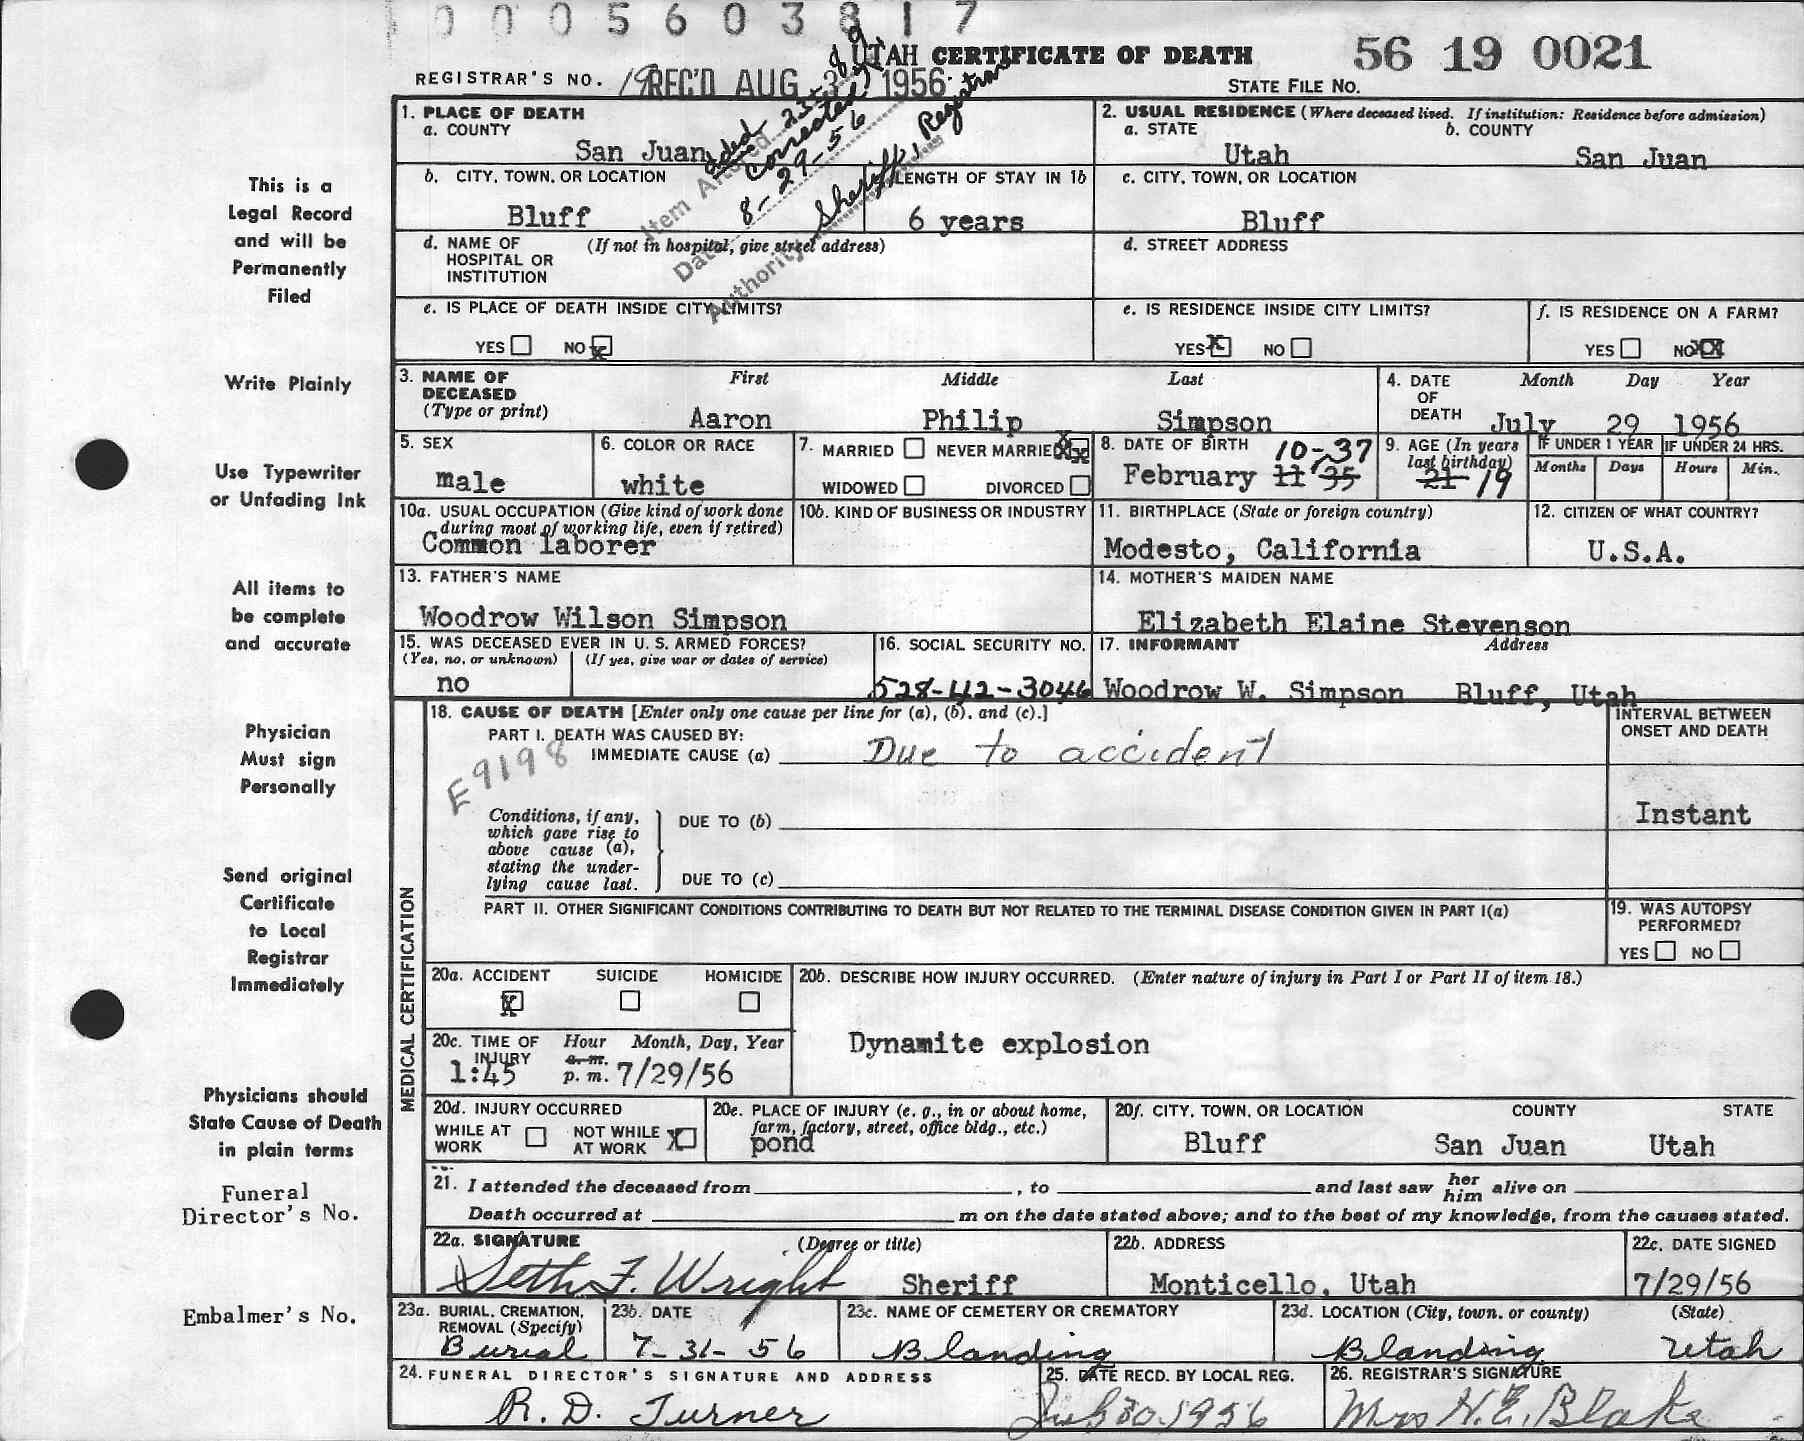 0005603817
UTAH CERTIFICATE OF DEATH
56 19 0021
REGISTRAR'S NO. 19
REC'D AUG 1956
STATE FILE NO.
Item Altered
Corrected
Date 8-29-56
Authority Sheriff & Registrar
This is a
Legal Record
and will be
Permanently
Filed
Write Plainly
Use Typewriter
or Unfading Ink
All items to
be complete
and accurate
Physician
Must sign
Personally
Send original
Certificate
to Local
Registrar
Immediately
Physicians should
State Cause of Death
in plain terms
Funeral
Director's No.
Embalmer's No.
1. PLACE OF DEATH
a. COUNTY
San Juan
2. USUAL RESIDENCE (Where deceased lived. If institution: Residence before admission)
a. STATE b. COUNTY
Utah San Juan
b. CITY, TOWN, OR LOCATION
Bluff
LENGTH OF STAY IN 1b
6 years
c. CITY, TOWN, OR LOCATION
Bluff
d. NAME OF HOSPITAL OR INSTITUTION (If not in hospital, give street address)
d. STREET ADDRESS
e. IS PLACE OF DEATH INSIDE CITY LIMITS?
YES NO X
e. IS RESIDENCE INSIDE CITY LIMITS?
YES X NO
f. IS RESIDENCE ON A FARM?
YES NO X
3. NAME OF DECEASED (Type or print)
First Middle Last
Aaron Philip Simpson
4. DATE OF DEATH Month Day Year
July 29 1956
5. SEX
male
6. COLOR OR RACE
white
7. MARRIED NEVER MARRIED X
WIDOWED DIVORCED
8. DATE OF BIRTH
10-37
February 11 '35
9. AGE (In years last birthday)
21 19
IF UNDER 1 YEAR IF UNDER 24 HRS.
Months Days Hours Min.
10a. USUAL OCCUPATION (Give kind of work done during most of working life, even if retired)
Common laborer
10b. KIND OF BUSINESS OR INDUSTRY
11. BIRTHPLACE (State or foreign country)
Modesto, California
12. CITIZEN OF WHAT COUNTRY?
U.S.A.
13. FATHER'S NAME
Woodrow Wilson Simpson
14. MOTHER'S MAIDEN NAME
Elizabeth Elaine Stevenson
15. WAS DECEASED EVER IN U. S. ARMED FORCES?
(Yes, no, or unknown) (If yes, give war or dates of service)
no
16. SOCIAL SECURITY NO.
528-42-3046
17. INFORMANT Address
Woodrow W. Simpson Bluff, Utah
MEDICAL CERTIFICATION
18. CAUSE OF DEATH [Enter only one cause per line for (a), (b), and (c).]
PART I. DEATH WAS CAUSED BY:
IMMEDIATE CAUSE (a) Due to accident
E9198
INTERVAL BETWEEN ONSET AND DEATH
Instant
Conditions, if any,
which gave rise to
above cause (a),
stating the under-
lying cause last.
DUE TO (b)
DUE TO (c)
PART II. OTHER SIGNIFICANT CONDITIONS CONTRIBUTING TO DEATH BUT NOT RELATED TO THE TERMINAL DISEASE CONDITION GIVEN IN PART I(a)
19. WAS AUTOPSY PERFORMED?
YES NO
20a. ACCIDENT SUICIDE HOMICIDE
X
20b. DESCRIBE HOW INJURY OCCURRED. (Enter nature of injury in Part I or Part II of item 18.)
Dynamite explosion
20c. TIME OF INJURY Hour Month, Day, Year
1:45 a. m. p. m. 7/29/56
20d. INJURY OCCURRED
WHILE AT WORK NOT WHILE AT WORK X
20e. PLACE OF INJURY (e. g., in or about home, farm, factory, street, office bldg., etc.)
pond
20f. CITY, TOWN, OR LOCATION COUNTY STATE
Bluff San Juan Utah
21. I attended the deceased from , to and last saw her him alive on
Death occurred at m on the date stated above; and to the best of my knowledge, from the causes stated.
22a. SIGNATURE (Degree or title)
Seth F. Wright Sheriff
22b. ADDRESS
Monticello, Utah
22c. DATE SIGNED
7/29/56
23a. BURIAL, CREMATION, REMOVAL (Specify)
Burial
23b. DATE
7-31-56
23c. NAME OF CEMETERY OR CREMATORY
Blanding
23d. LOCATION (City, town, or county) (State)
Blanding Utah
24. FUNERAL DIRECTOR'S SIGNATURE AND ADDRESS
R. D. Turner
25. DATE RECD. BY LOCAL REG.
July 30 1956
26. REGISTRAR'S SIGNATURE
Mrs H. E. Blake